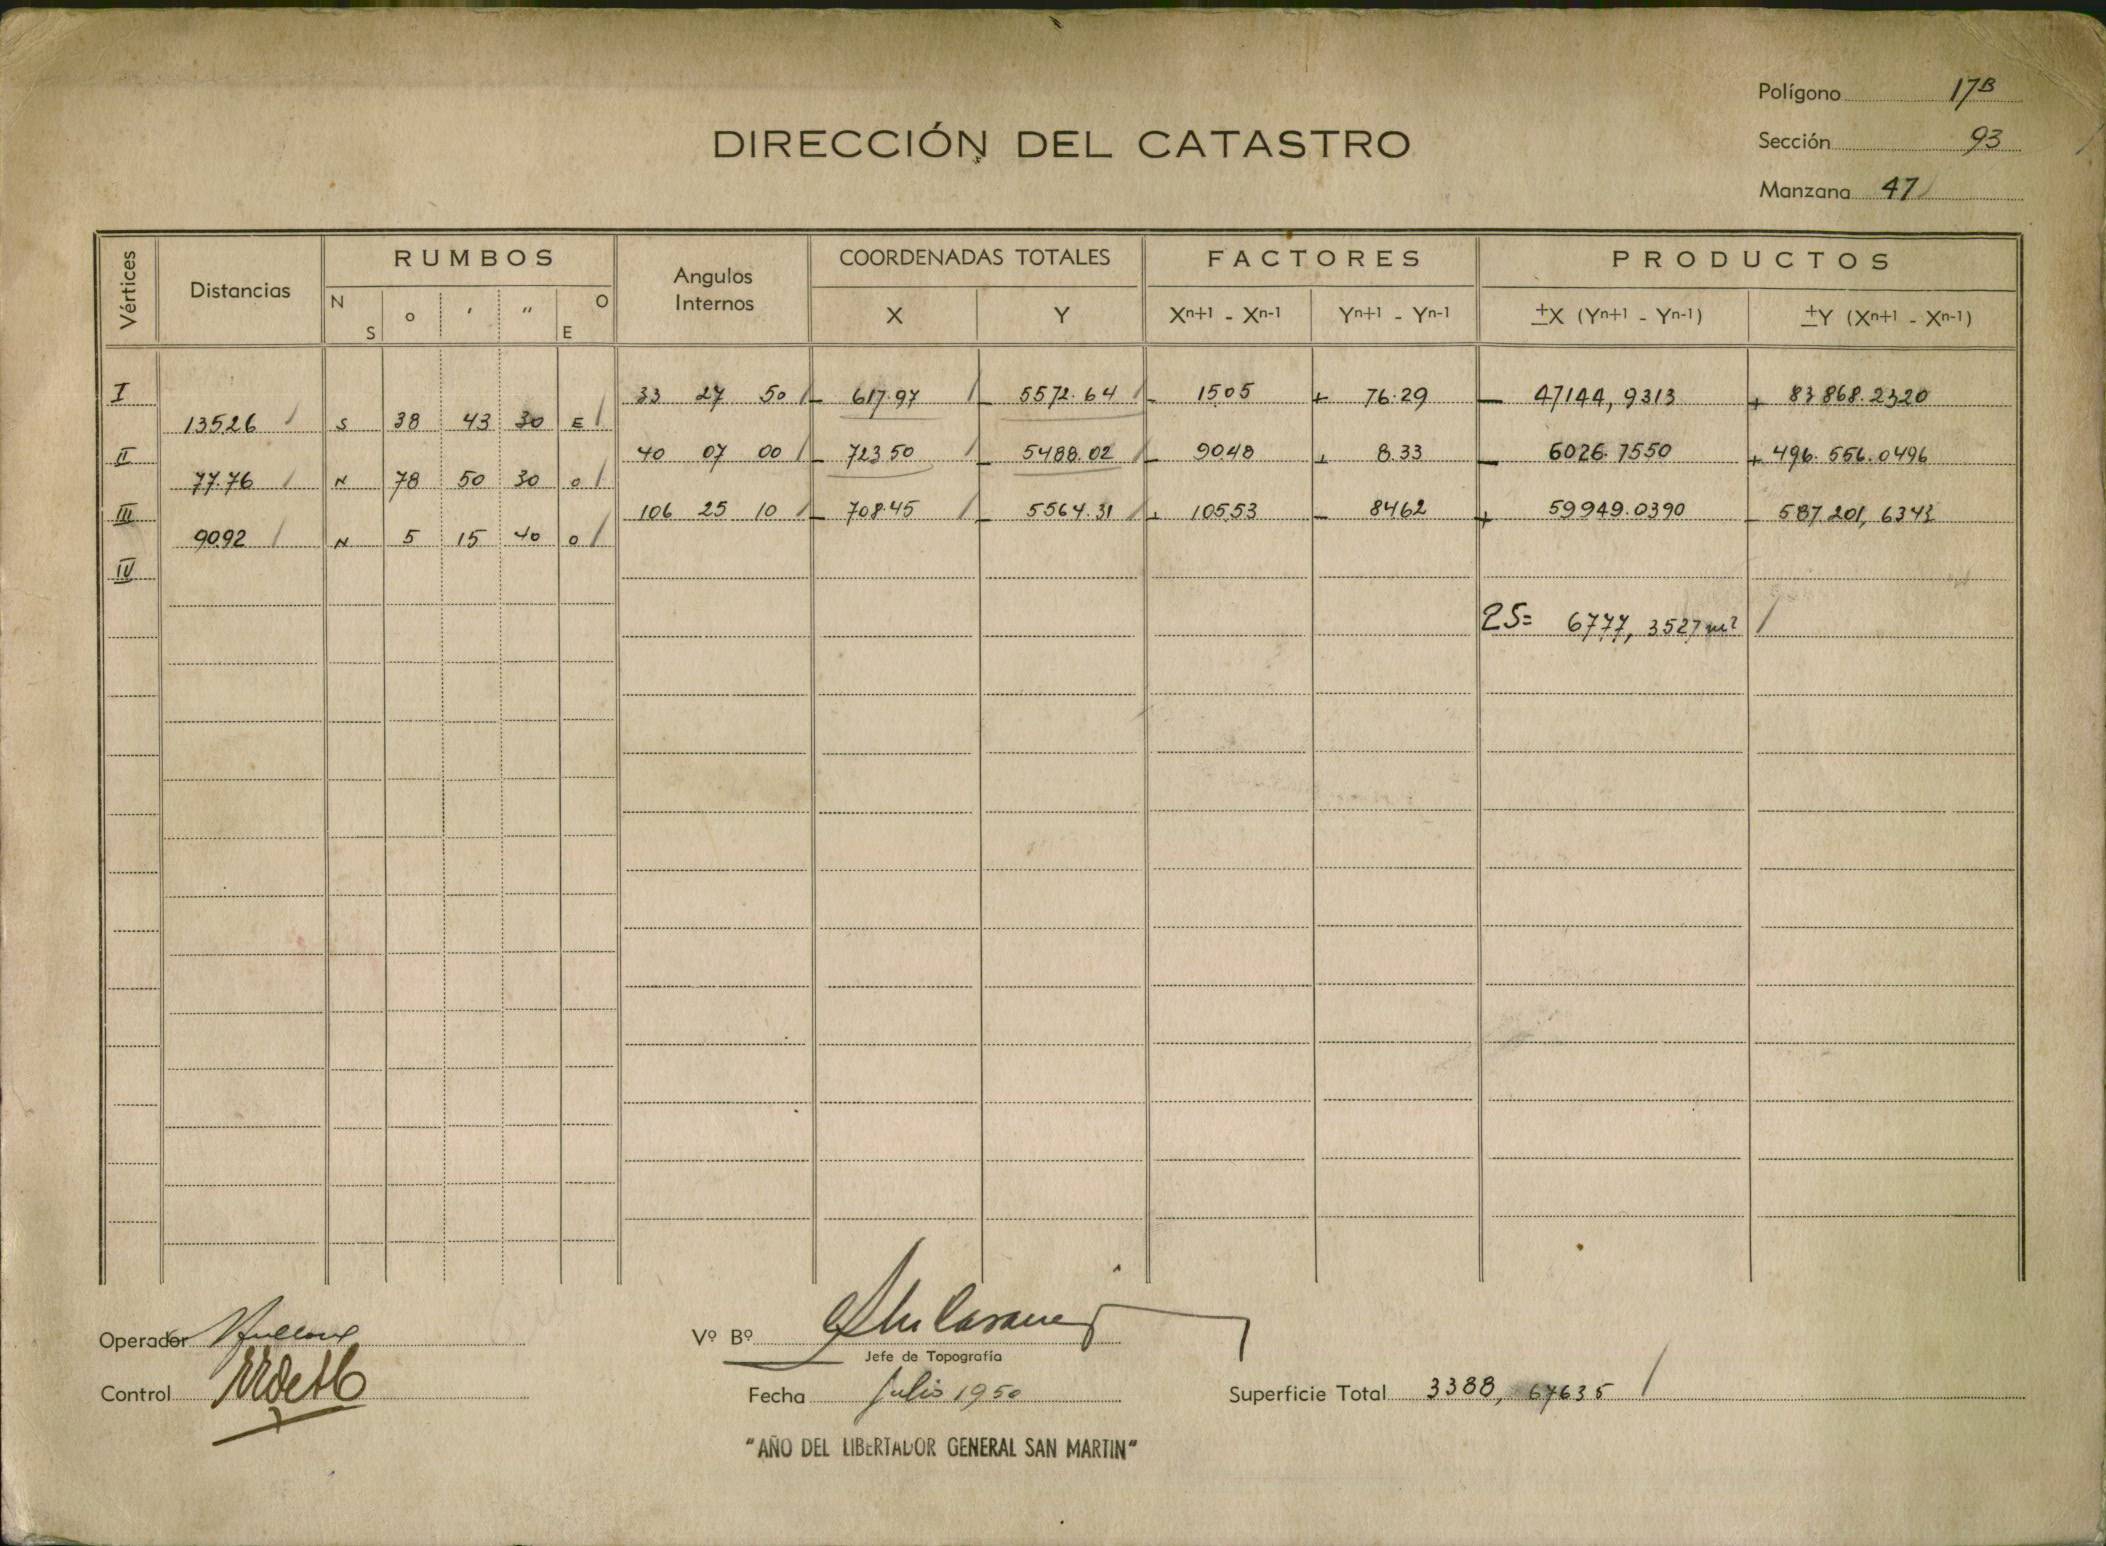 Polígono 17B
DIRECCIÓN DEL CATASTRO
Sección 93
Manzana 47
Vértices Distancias RUMBOS Angulos Internos COORDENADAS TOTALES FACTORES PRODUCTOS
N S o ' " O E X Y Xn+1 - Xn-1 Yn+1 - Yn-1 ±X (Yn+1 - Yn-1) ±Y (Xn+1 - Xn-1)
I 33 27 50 - 617.97 - 5572.64 - 15.05 + 76.29 - 47144,9313 + 83868.2320
135.26 S 38 43 30 E
II 40 07 00 - 723.50 - 5488.02 - 90.48 + 8.33 - 6026.7550 + 496.556.0496
77.76 N 78 50 30 O
III 106 25 10 - 708.45 - 5564.31 + 105.53 - 84.62 + 59949.0390 - 587.201,6343
90.92 N 5 15 40 O
IV
2S= 6777,3527 m²
Operador
Vº Bº
Jefe de Topografía
Control
Fecha Julio 1950
Superficie Total 3388,67635
"AÑO DEL LIBERTADOR GENERAL SAN MARTIN"